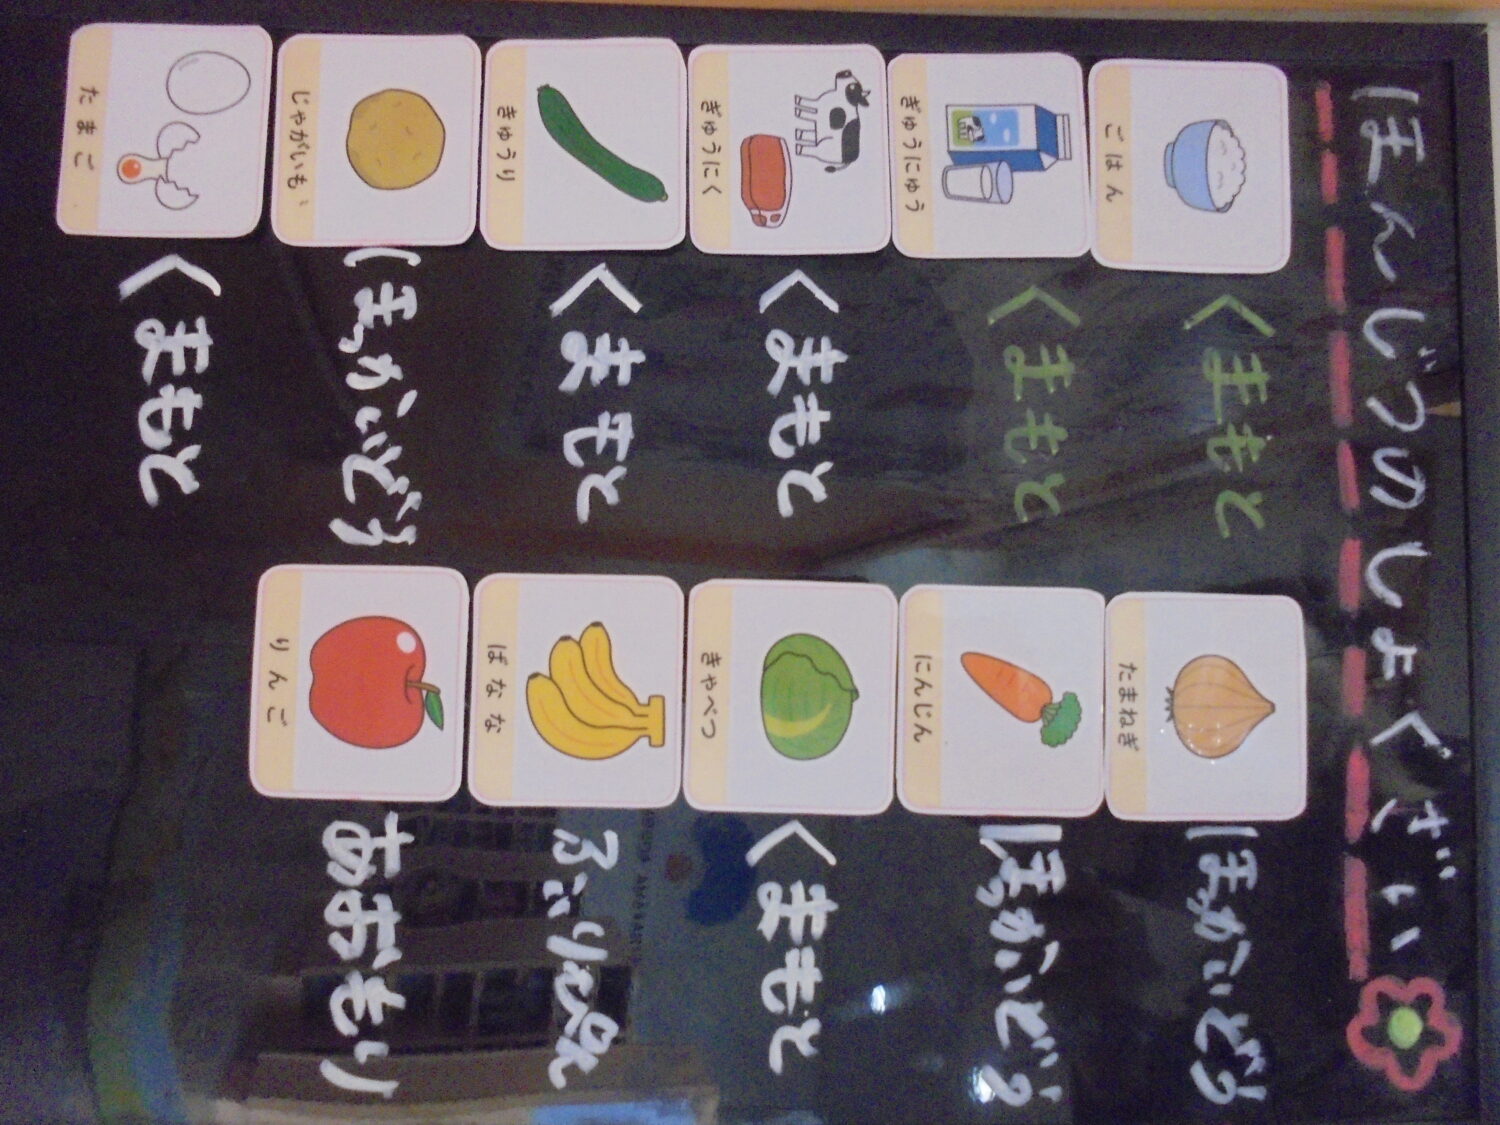 ほんじつのしょくざい
ごはん くまもと
ぎゅうにゅう くまもと
ぎゅうにく くまもと
きゅうり くまもと
じゃがいも ほっかいどう
たまご くまもと
たまねぎ ほっかいどう
にんじん ほっかいどう
きゃべつ くまもと
ばなな
りんご あおもり